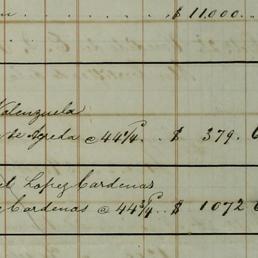 $ 11,000.
Valenzuela
de Ageda @ 44¼ $ 379. 6
Lopez Cardenas
Cardenas @ 44¾ $ 1072 6